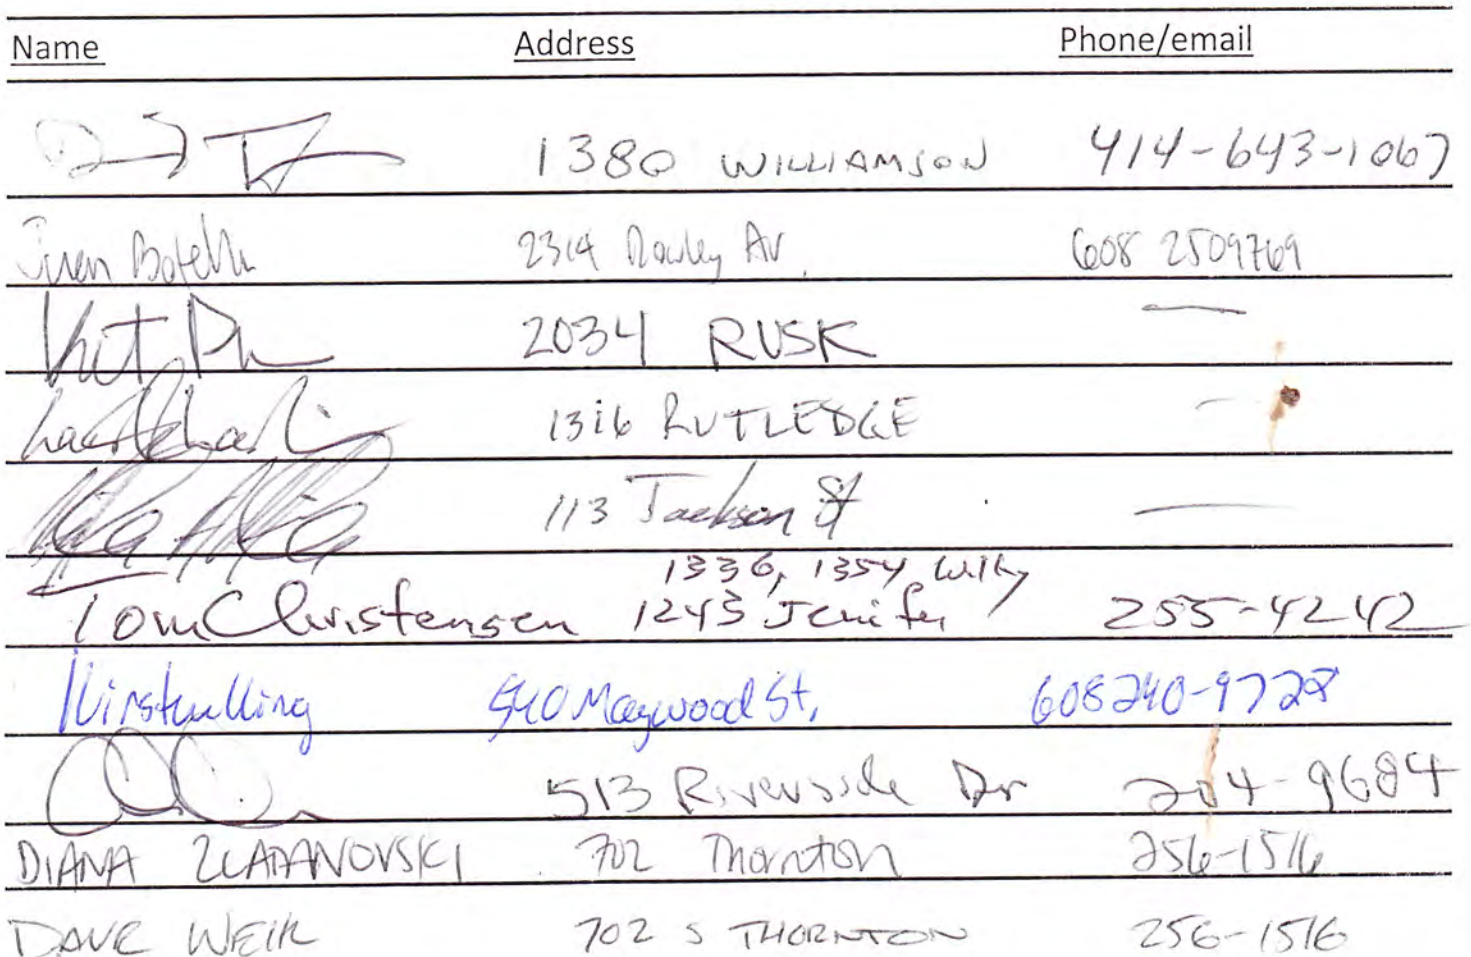 Name Address Phone/email
1380 WILLIAMSON 414-643-1067
Juan Botella 2314 Rowley Av. 608 2509769
2034 RUSK —
1316 RUTLEDGE —
113 Jackson St —
1336, 1354 Willy
Tom Christensen 1243 Jenifer 255-4242
540 Maywood St. 608 240-9728
513 Riverside Dr 204-9684
DIANA ZLATANOVSKI 702 Thornton 256-1516
DAVE WEIR 702 S THORNTON 256-1516